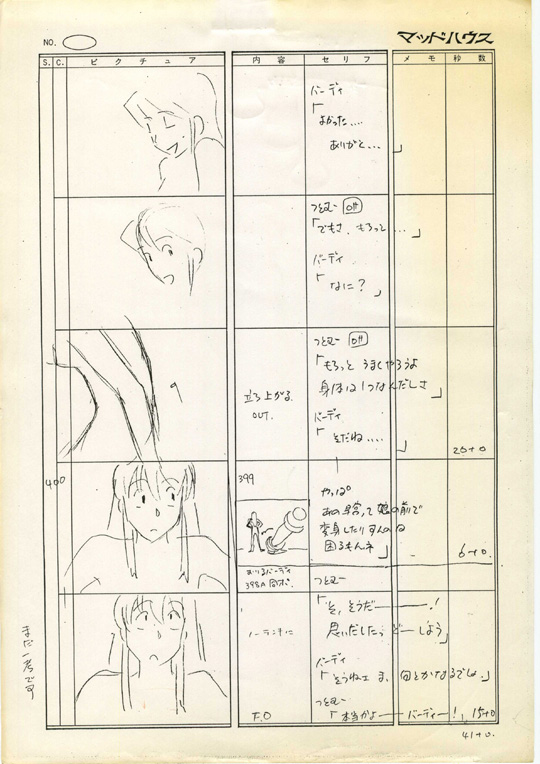 NO.
マッドハウス
S. C. ピクチュア 内容 セリフ メモ 秒数
バーディ
「よかった....
ありがと...」
つとむー off
「でもさ、もちっと...」
バーディ
「なに?」
立ち上がる
OUT.
つとむー off
「もちっと うまくやろうよ
身体は1つなんだしさ」
バーディ
「そだね....」
20+0
400
399
やっぱ
の前で
変身したりすんのは
困るもんネ」
6+0
398の同ポ
つとむー
「そ、そうだ――!
思いだしたっ どーしよう」
バーディ
「そうねェ ま、何とかなるでしょ」
つとむー
「本当かよ――バーディー!」
F.O
15+0
41+0